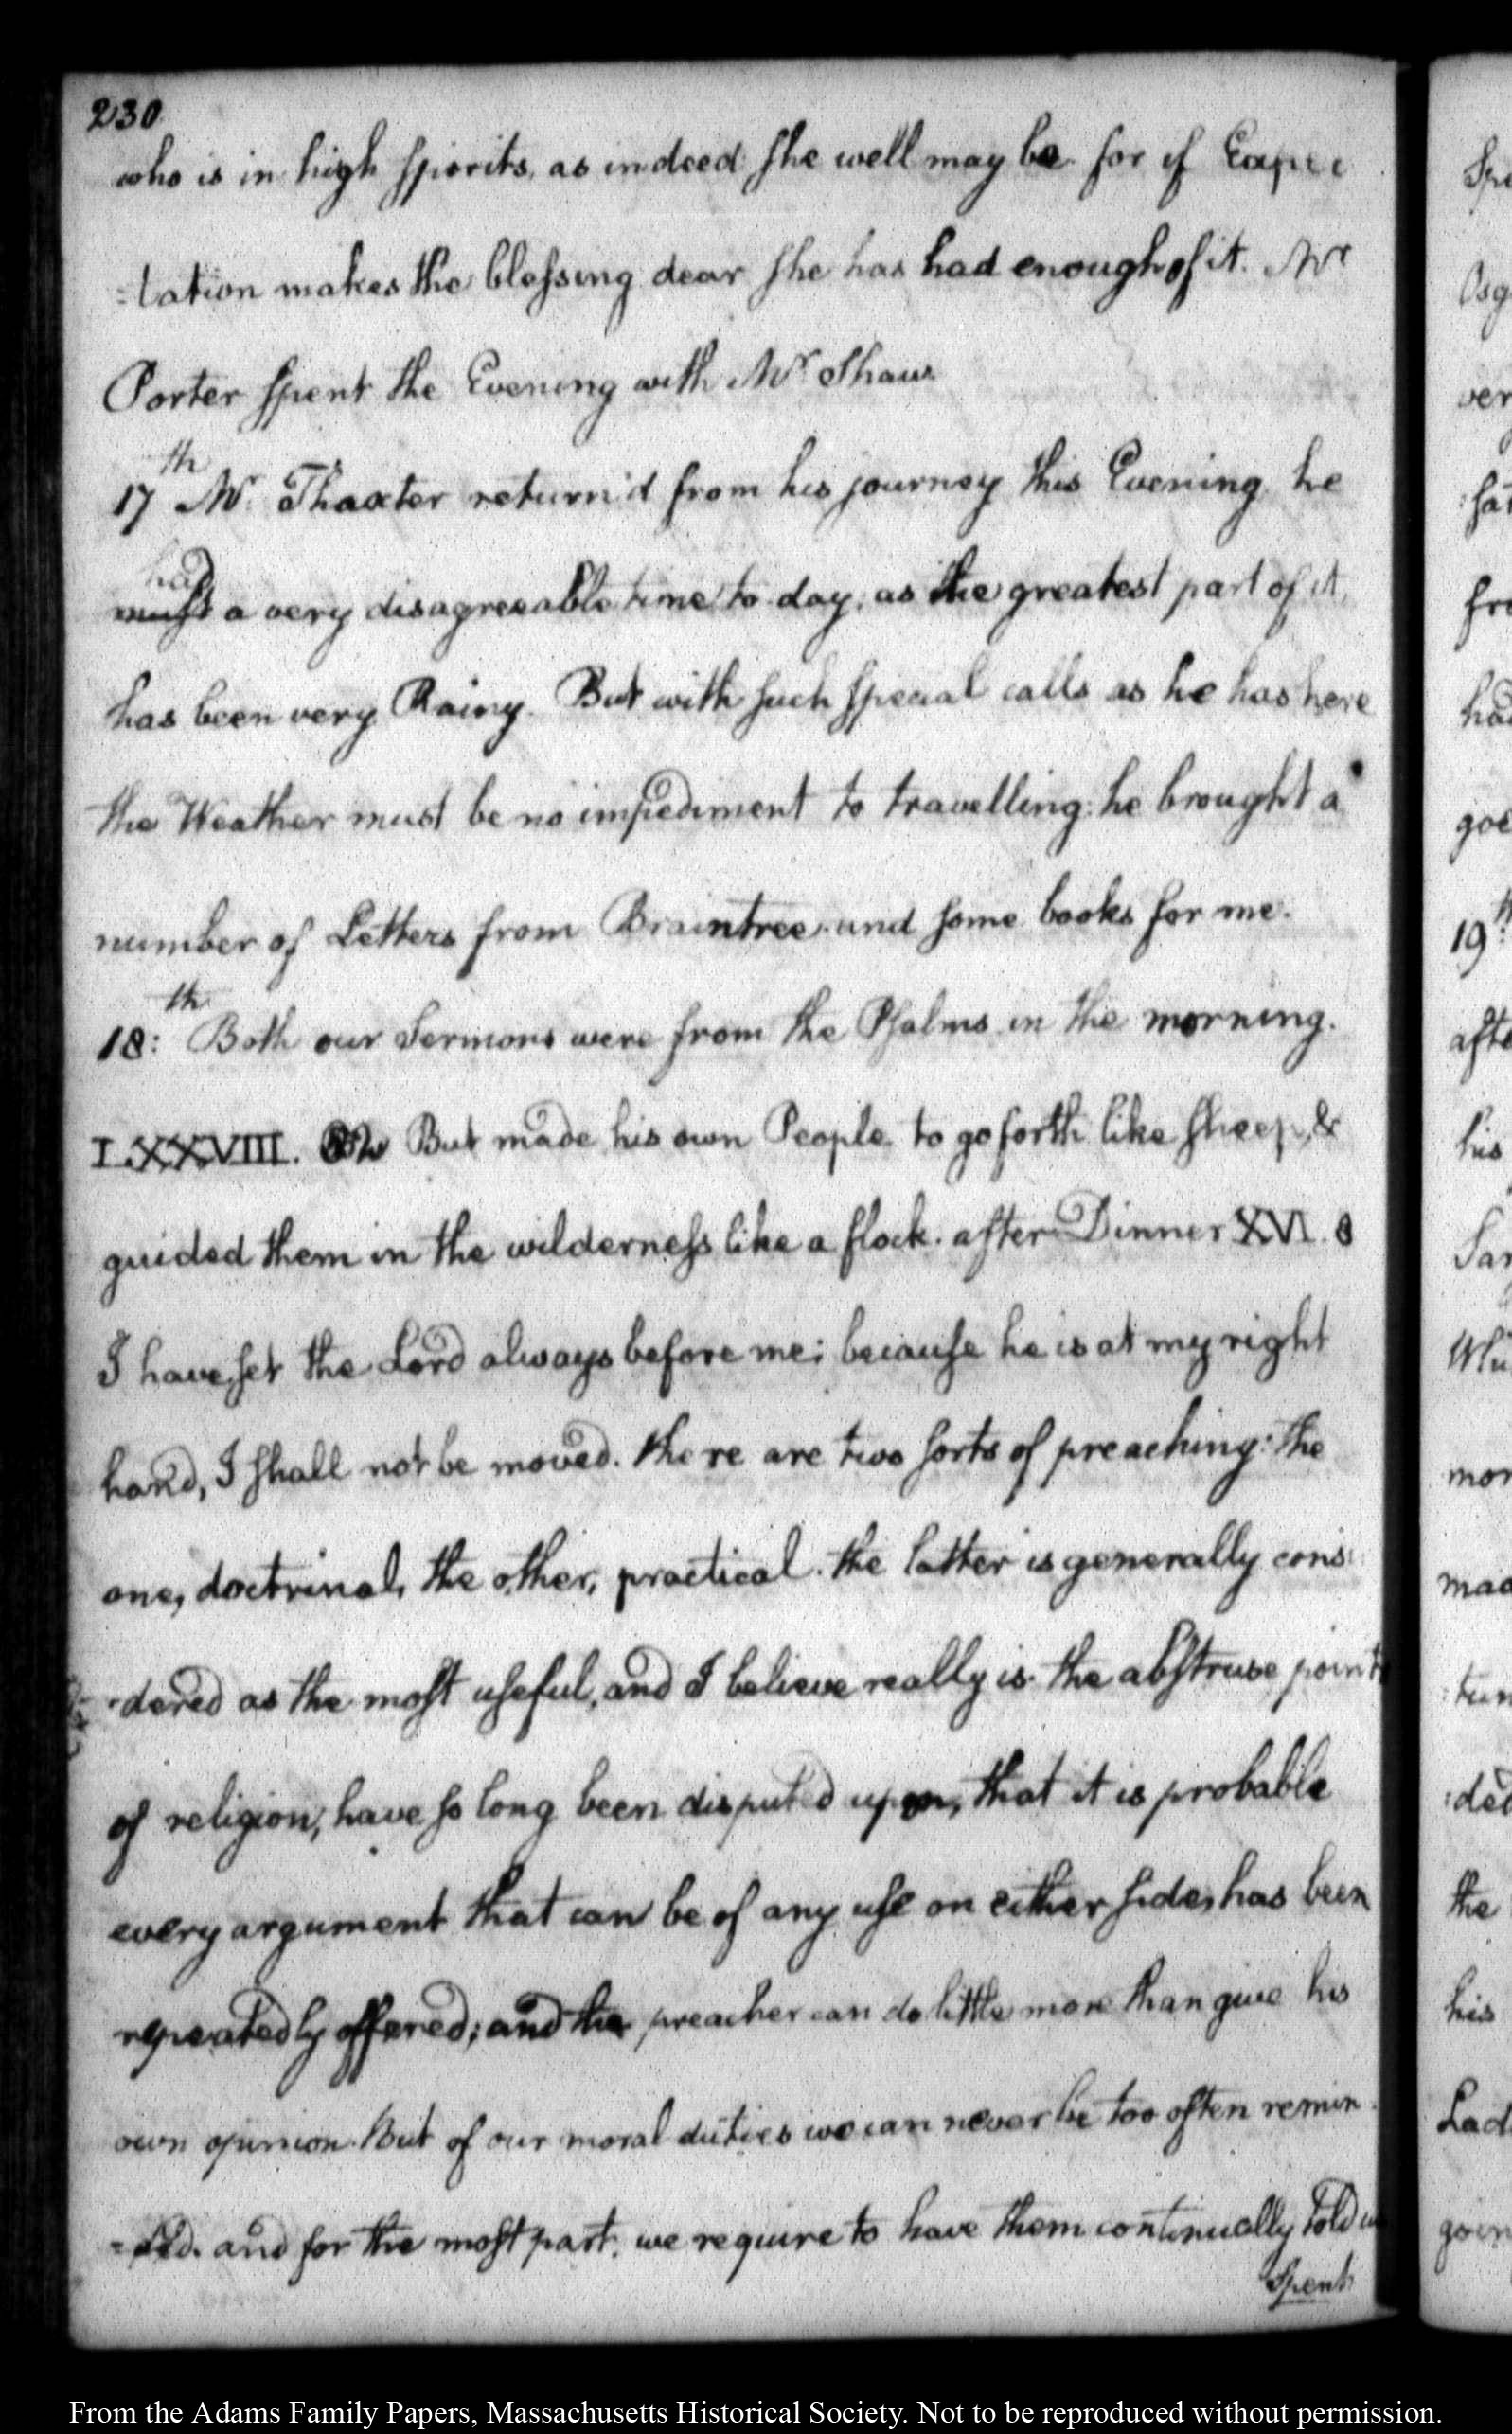 230
who is in high spirits, as indeed she well may be for if Expec
=tation makes the blessing dear she has had enough of it. Mr
Porter spent the Evening with Mr Shaw.
17th Mr. Thaxter return'd from his journey this Evening, he
had
must a very disagreeable time to day, as the greatest part of it,
has been very Rainy. But with such special calls as he has here
the Weather must be no impediment to travelling: he brought a
number of Letters from Braintree and some books for me.
18:th Both our Sermons were from the Psalms in the morning.
LXXVIII. 52 But made his own People to go forth like sheep, &
guided them in the wilderness like a flock. after Dinner XVI. 8
I have set the Lord always before me; because he is at my right
hand, I shall not be moved. there are two sorts of preaching: the
one, doctrinal, the other, practical. the latter is generally consi
-dered as the most useful, and I believe really is. the abstruse points
of religion, have so long been disputed upon, that it is probable
every argument that can be of any use on either side, has been
repeatedly offered; and the preacher can do little more than give his
own opinion. But of our moral duties we can never be too often remin
=ded. and for the most part, we require to have them continually told us
Spent
Spe
Osg
ver
fat
fro
had
goe
19th
afte
his
Sar
Whi
mor
mad
:tun
:ded
the
his
Lad
goin
From the Adams Family Papers, Massachusetts Historical Society. Not to be reproduced without permission.